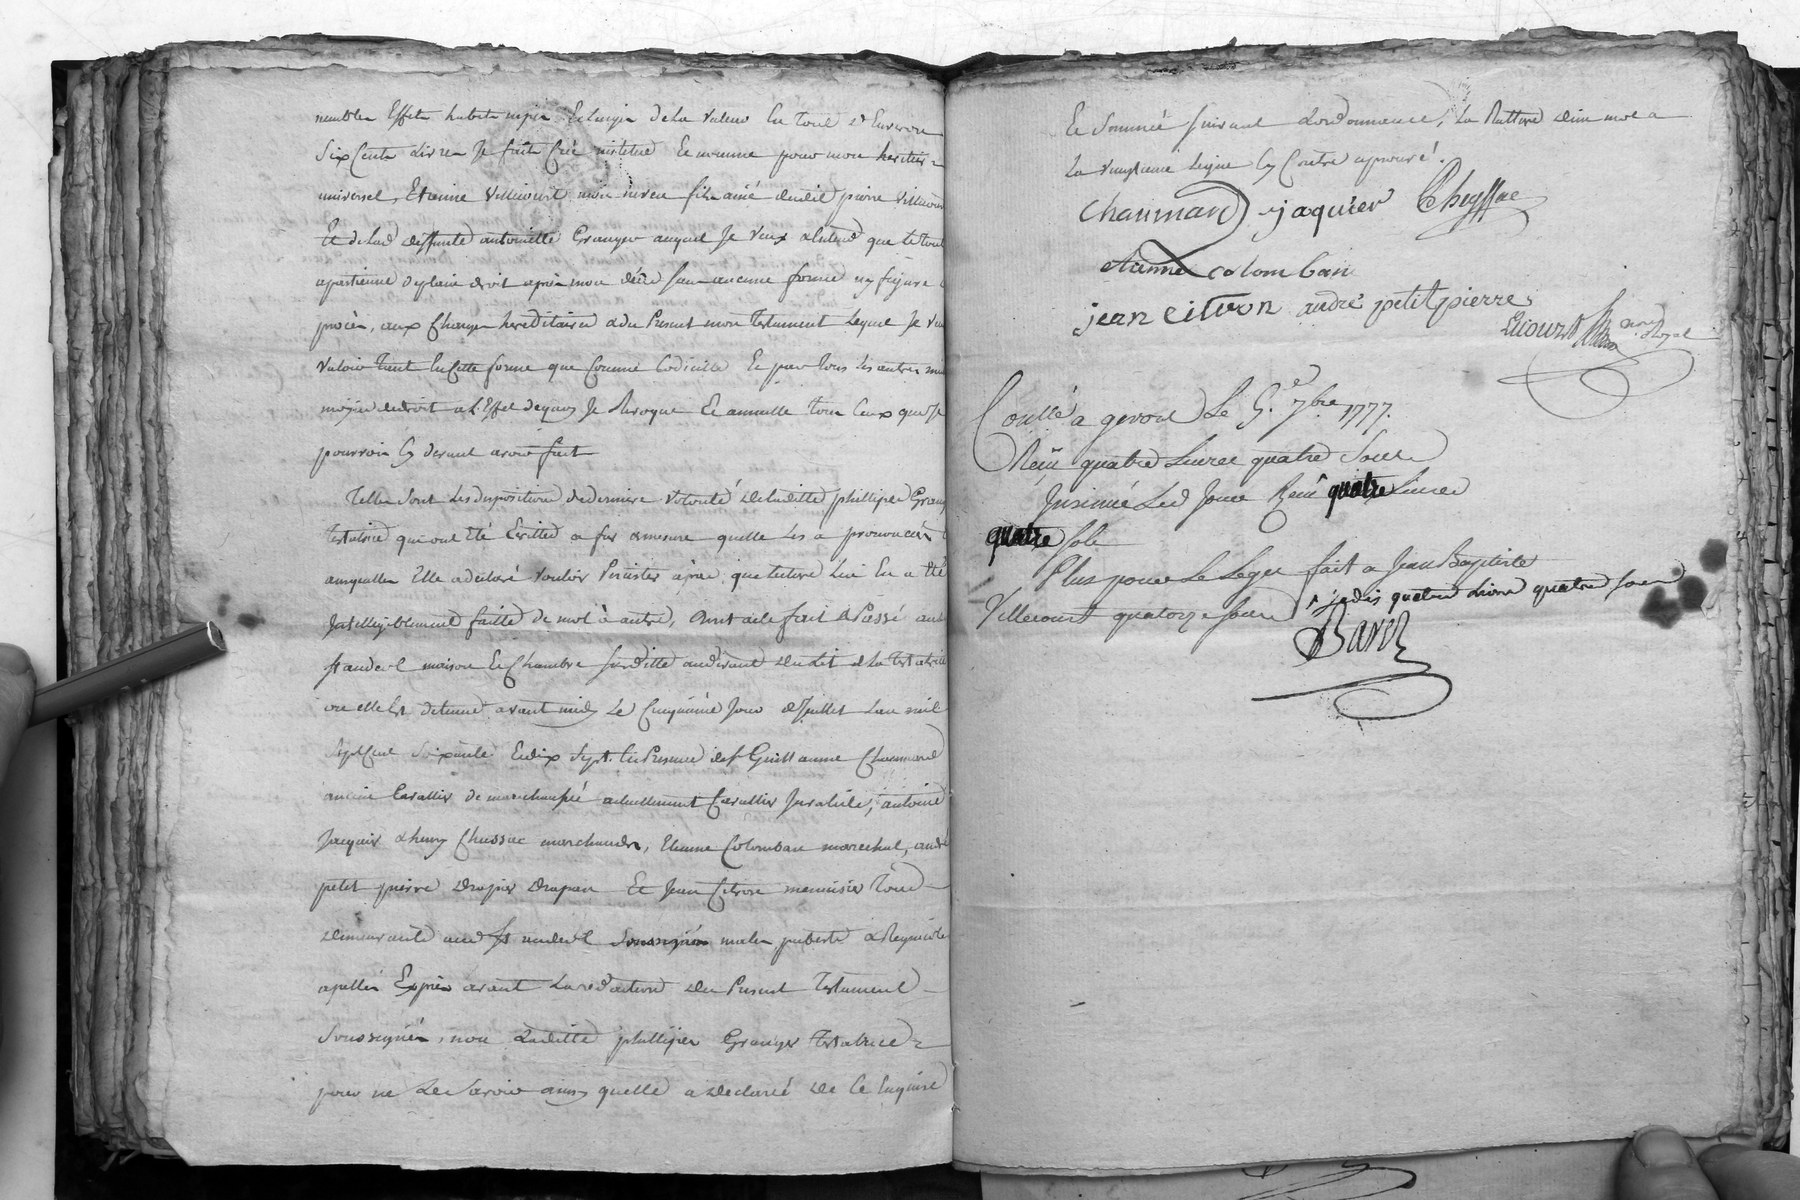 meubles Effets habits nipes Et linges de La valeur En tout d'Environ
Six Cents Livres Je fait Crée institué Et nomme pour mon heritier
universel, Etienne Villecourt mon neveu fils ainé dudit pierre Villecourt
Et de Lad deffunte antoinette Granger auquel Je veux & Entend que le tout
apartienne de plain droit après mon décès sans aucune forme ny figure
procès, aux Charges hereditaires & du Present mon testament Lequel Je veux
Valoir tant En Cette forme que Comme Codicille Et par tous Les autres
moyens de droit a L'Effet de quoy Je Revoque Et annulle tous Ceux que Je
pourrois Cy devant avoir fait
Telles sont Les dispositions de derniere volonté de Laditte phillipes Granger
testatrice qui ont été Ecrittes a fur & mesure quelle Les a prononcées
auxquelles Elle a declaré vouloir Persister après que lecture Lui En a été
Intelligiblement faitte de mot à autre, dont acte fait & Passé aud
maison Et Chambre susditte audevant du Lit de La testatrice
ou elle Est detenue avant midy Le Cinquieme Jour de Juillet L'an mil
Sept Cent Soixante Et dix Sept. En Presence de Sr Guillaume Chaumard
ancien Cavallier de marechaussée actuellement Cavallier Invalide, antoine
Jaquier & henry Chessac marchands, Etienne Colomban marechal, andré
petit pierre drapier drapan Et Jean Citron menuisier Tous
demeurants aud St soussignés males puberts & Regnicoles
apellés Exprès avant La redaction du Present testament
Soussignés, non Laditte phillipes Granger testatrice
pour ne Le Savoir ainsy quelle a declaré de Ce Enquise
Et Sommée suivant Lordonnance, La Rature d'un mot a
La vingtieme Ligne Cy Contre aprouvé.
Chaumard jaquier Cheyssac
etienne colomban
jean citron andre petit pierre
nore Royal
Conllé a gevout Le 5e. 7bre 1777.
Reçu quatre Livres quatre Sous
Insinué Led Jour Reçu quatre Livres
quatre sols
Plus pour Le Legs fait a Jean Baptiste
Villecourt quatorze Sous je dis quatre Livres quatre sous
Barez